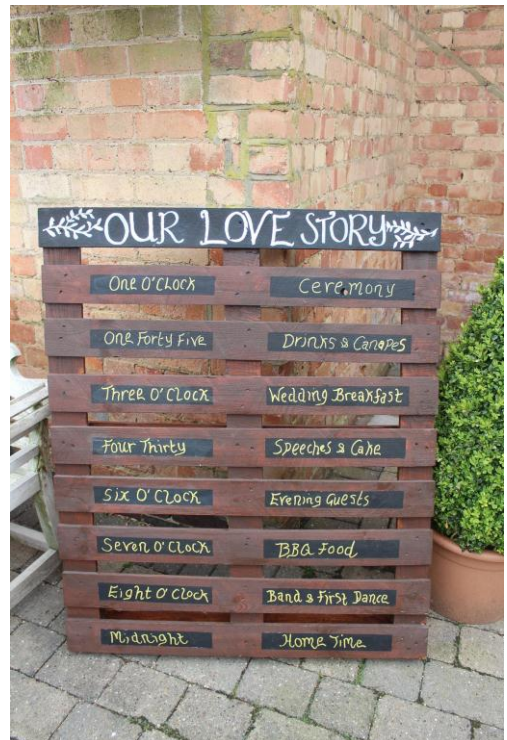 OUR LOVE STORY
One O'Clock Ceremony
One Forty Five Drinks & Canapes
Three O'Clock Wedding Breakfast
Four Thirty Speeches & Cake
Six O'Clock Evening Guests
Seven O'Clock BBQ Food
Eight O'Clock Band & First Dance
Midnight Home Time